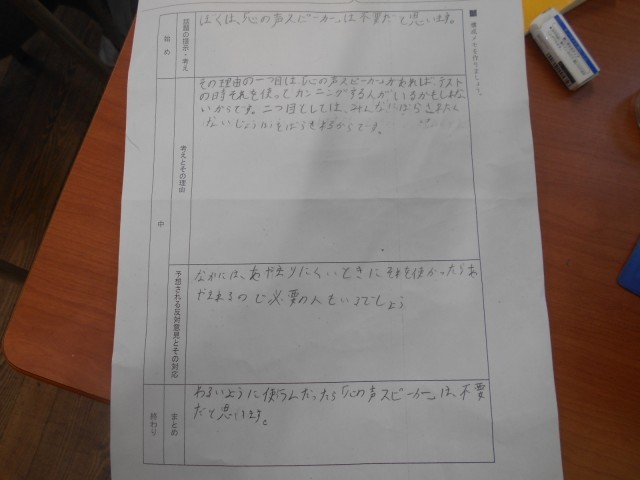 ■ 構成メモを作りましょう。
始め
話題の提示・考え
ぼくは、「心の声スピーカー」は不要だと思います。
中
考えとその理由
その理由の一つ目は「心の声スピーカー」があれば、テスト
の日寺それを使ってカンニングする人がいるかもしれな
いからです。二つ目としては、みんなにばらされたく
ないじょうほうをばらされるからです。
予想される反対意見とその対応
なかには、あやまりにくいときにそれを使かったらあ
やまれるので必要の人もいるでしょう
終わり
まとめ
わるいように使うんだったら「心の声スピーカー」は、不要
だと思います。